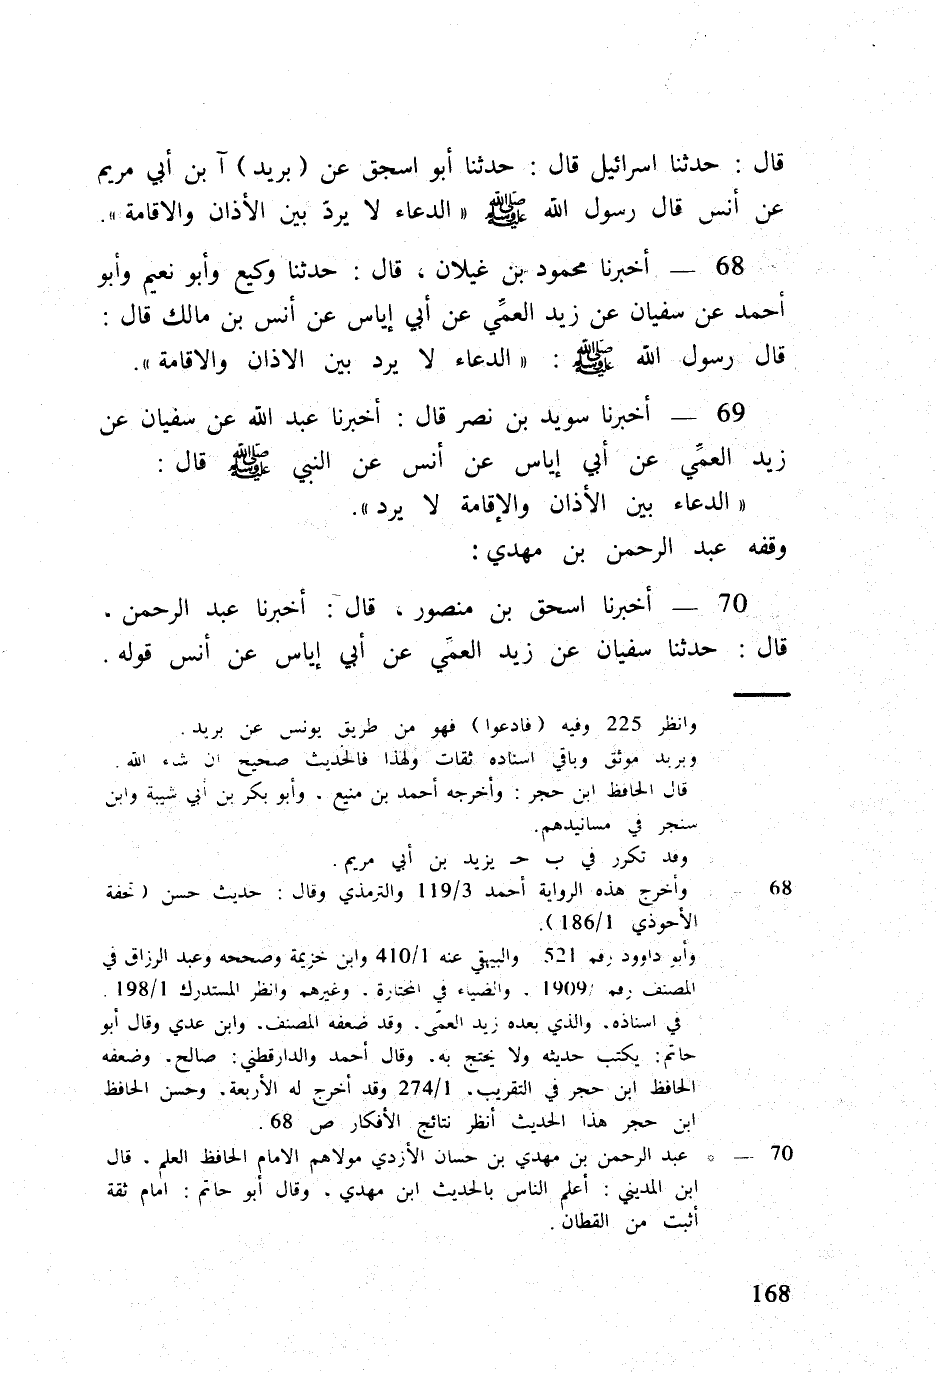 قال : حدثنا اسرائيل قال : حدثنا أبو اسحق عن ( بريد ) آ بن أبي مريم
عن أنس قال رسول الله ﷺ « الدعاء لا يردّ بين الأذان والاقامة ».
68 — أخبرنا محمود بن غيلان ، قال : حدثنا وكيع وأبو نعيم وأبو
أحمد عن سفيان عن زيد العمِّي عن أبي إياس عن أنس بن مالك قال :
قال رسول الله ﷺ : « الدعاء لا يرد بين الاذان والاقامة ».
69 — أخبرنا سويد بن نصر قال : أخبرنا عبد الله عن سفيان عن
زيد العمِّي عن أبي إياس عن أنس عن النبي ﷺ قال :
« الدعاء بين الأذان والإقامة لا يرد ».
وقفه عبد الرحمن بن مهدي :
70 — أخبرنا اسحق بن منصور ، قال : أخبرنا عبد الرحمن .
قال : حدثنا سفيان عن زيد العمِّي عن أبي إياس عن أنس قوله .
وانظر 225 وفيه ( فادعوا ) فهو من طريق يونس عن بريد .
وبريد موثق وباقي اسناده ثقات ولهذا فالحديث صحيح ان شاء الله .
قال الحافظ ابن حجر : وأخرجه أحمد بن منيع . وأبو بكر بن أبي شيبة وابن
سنجر في مسانيدهم.
وقد تكرر في ب حـ يزيد بن أبي مريم .
68 — وأخرج هذه الرواية أحمد 119/3 والترمذي وقال : حديث حسن ( تحفة
الأحوذي 186/1 ).
وأبو داوود رقم 521 والبيهقي عنه 410/1 وابن خزيمة وصححه وعبد الرزاق في
المصنف رقم /1909 . والضياء في المختارة . وغيرهم وانظر المستدرك 198/1 .
في اسناده. والذي بعده زيد العمّى. وقد ضعفه المصنف. وابن عدي وقال أبو
حاتم: يكتب حديثه ولا يحتج به. وقال أحمد والدارقطني: صالح. وضعفه
الحافظ ابن حجر في التقريب. 274/1 وقد أخرج له الأربعة. وحسن الحافظ
ابن حجر هذا الحديث أنظر نتائج الأفكار ص 68 .
70 — ٥ عبد الرحمن بن مهدي بن حسان الأزدي مولاهم الامام الحافظ العلم . قال
ابن المديني : أعلم الناس بالحديث ابن مهدي . وقال أبو حاتم : امام ثقة
أثبت من القطان .
168